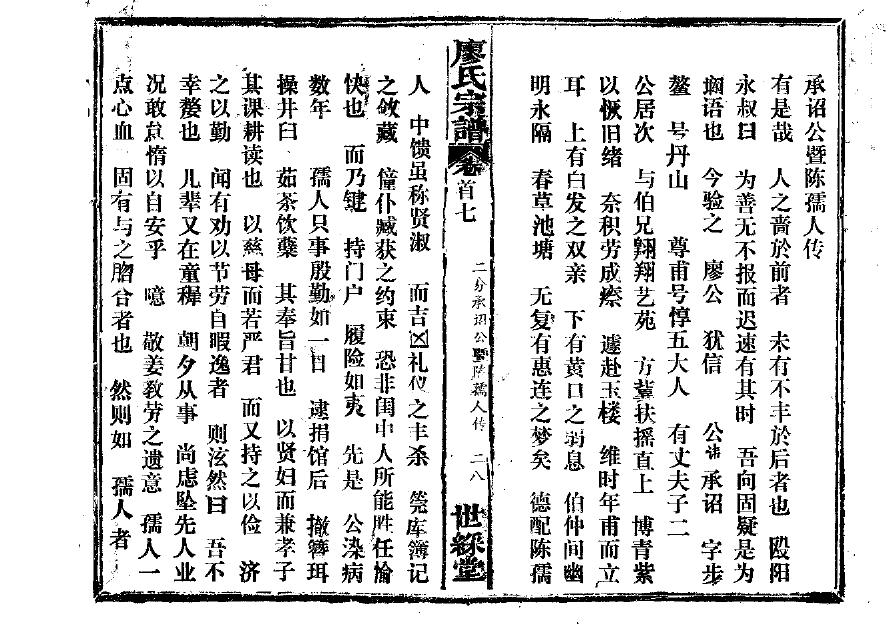 承诏公暨陈孺人传
有是哉 人之啬於前者 未有不丰於后者也 殴阳
永叔曰 为善无不报而迟速有其时 吾向固疑是为
痼语也 今验之 廖公 犹信 公讳承诏 字步
鳌 号丹山 尊甫号惇五大人 有丈夫子二
公居次 与伯兄翱翔艺苑 方冀扶摇直上 博青紫
以恢旧绪 奈积劳成瘵 遽赴玉楼 维时年甫而立
耳 上有白发之双亲 下有黄口之弱息 伯仲间幽
明永隔 春草池塘 无复有惠连之梦矣 德配陈孺
廖氏宗譜 卷首七 二分承诏公暨陈孺人传 二八 世綵堂
人 中馈虽称贤淑 而吉凶礼仪之丰杀 筦库簿记
之敛藏 僮仆臧获之约束 恐非闺中人所能胜任愉
快也 而乃键 持门户 履险如夷 先是 公染病
数年 孺人只事殷勤如一日 逮捐馆后 撤簪珥
操井臼 茹茶饮蘖 其奉旨甘也 以贤妇而兼孝子
其课耕读也 以慈母而若严君 而又持之以俭 济
之以勤 闻有劝以节劳自暇逸者 则泫然曰 吾不
幸嫠也 儿辈又在童穉 朝夕从事 尚虑坠先人业
况敢怠惰以自安乎 噫 敬姜教劳之遗意 孺人一
点心血 固有与之脗合者也 然则如 孺人者